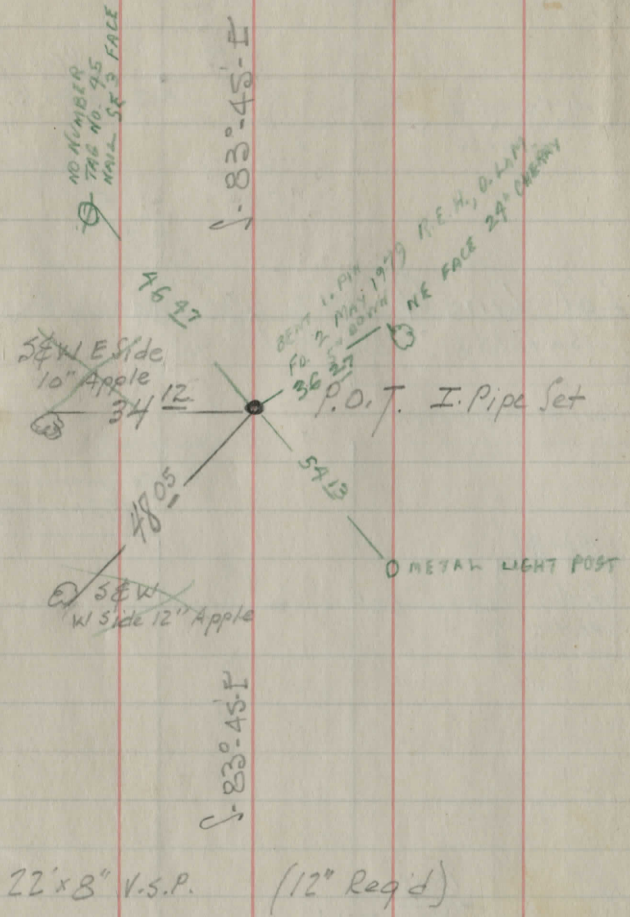 NO NUMBER
TAG NO. 45
NAIL SE 3 FACE
S-83°-45'-E
46 47
BENT I. PIN
FD. 2 MAY 1979 R.E.H., D.
5" DOWN
36 27
NE FACE 24" CHERRY
S&W E Side
10" Apple
34 12
P.O.T. I. Pipe Set
54 13
48 05
METAL LIGHT POST
S&W
W Side 12" Apple
S-83°-45'-E
22'x8" V.S.P. (12" Req'd)